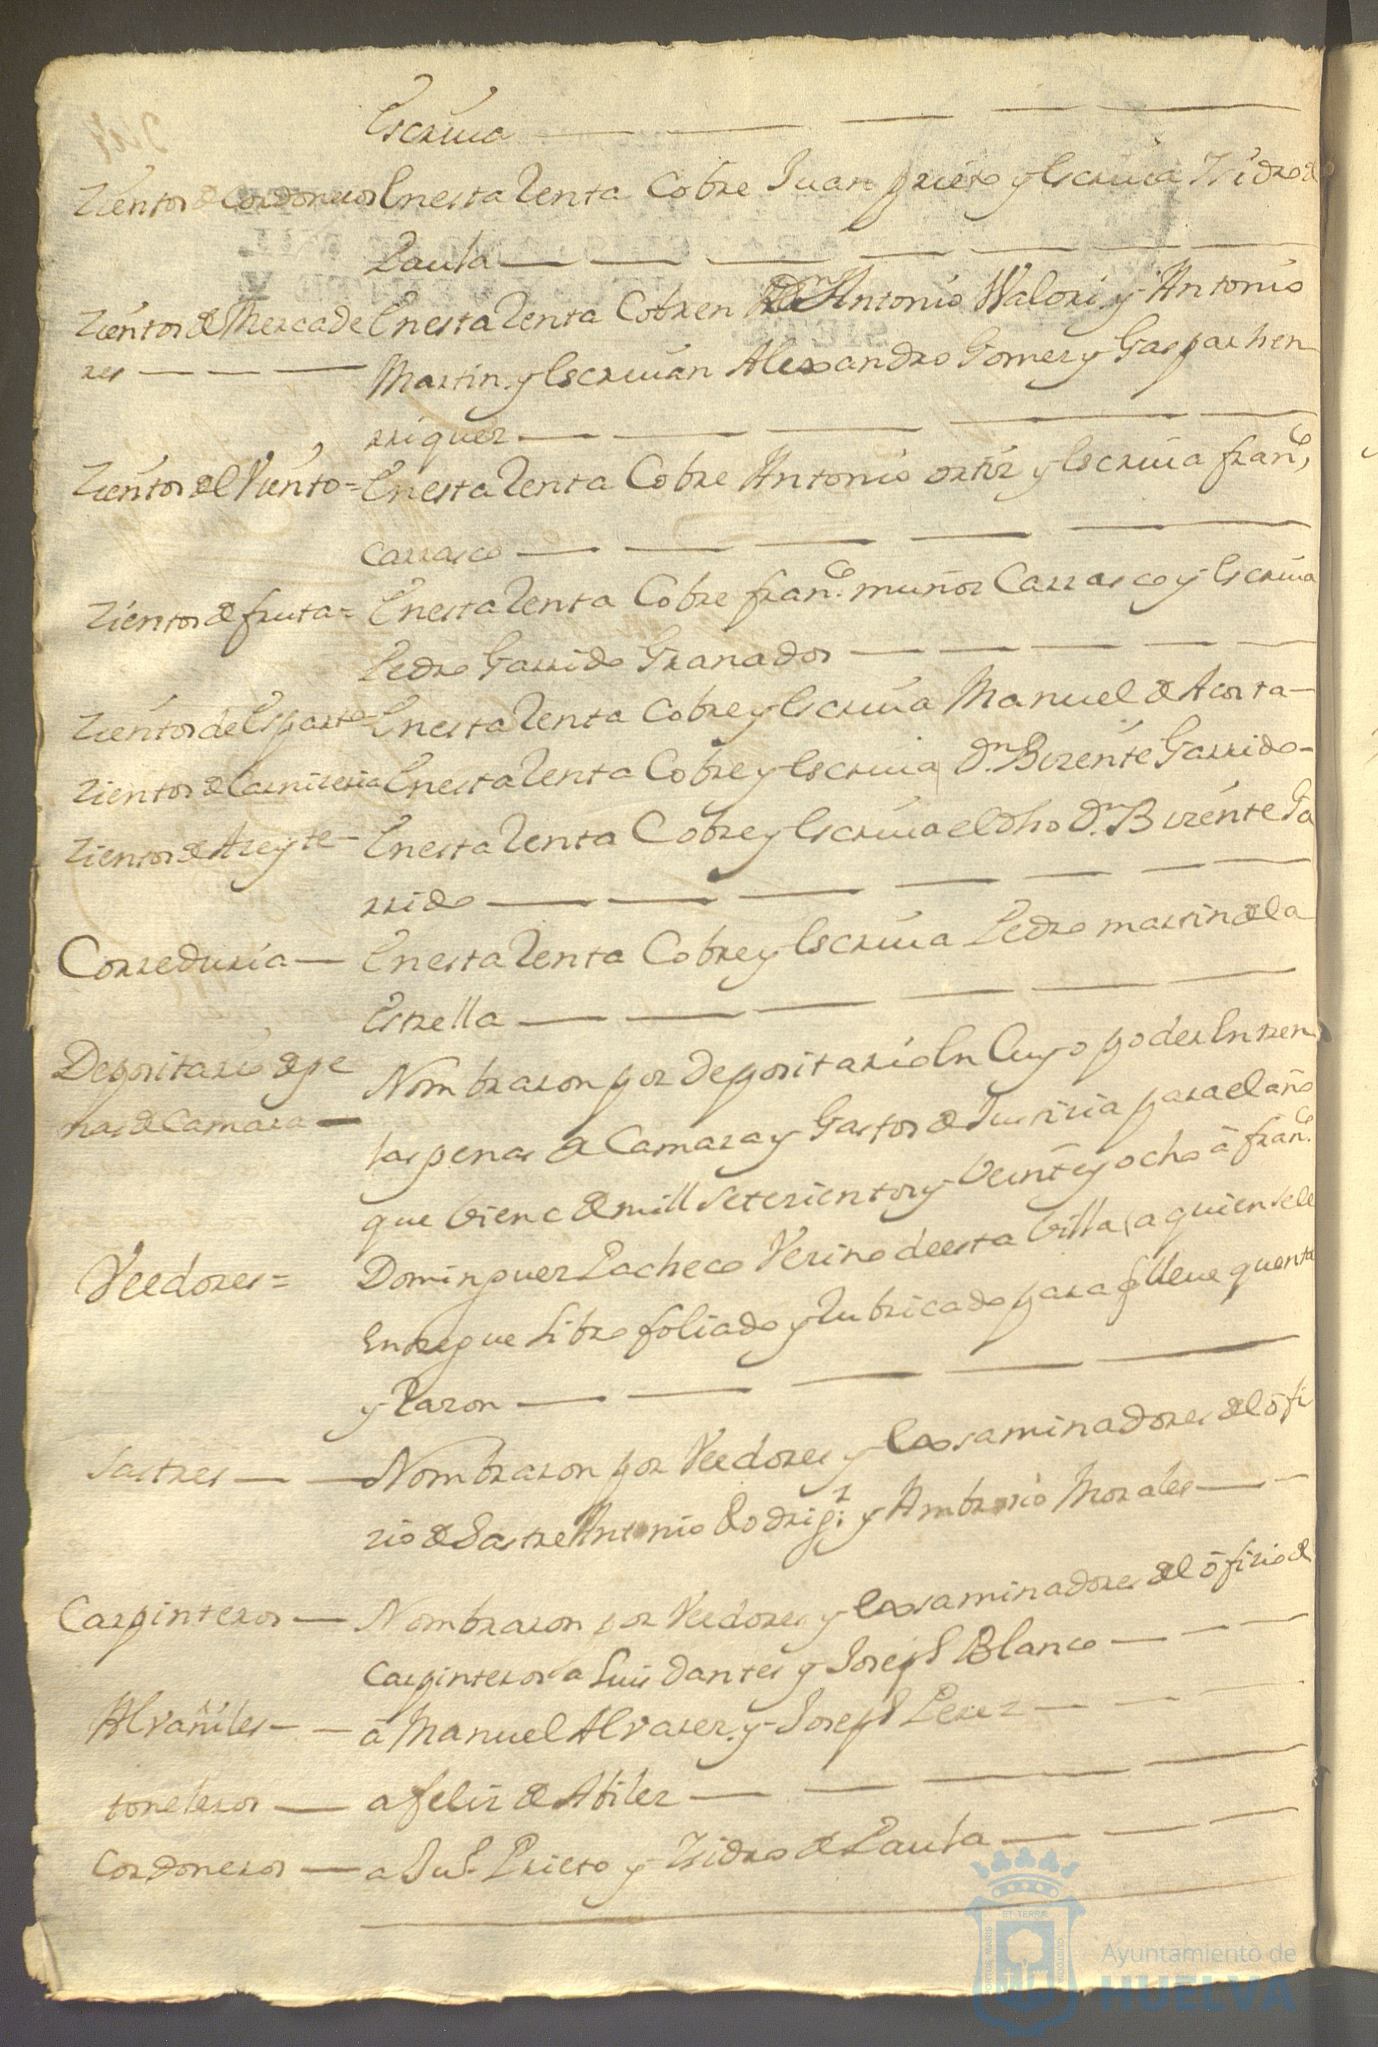 Escriua
Zientos de Cordoneros En esta Renta Cobre Juan prieto y Escriua Isidro de
Paula
Zientos de Mercade En esta Renta Cobren Dn Antonio Walori y Antonio
res Martin y Escriuan Alexandro Gomez y Gaspar hen
rriquez
Zientos del Viento = En esta Renta Cobre Antonio ortiz y Escriua franco
Carrasco
Zientos de fruta = En esta Renta Cobre franco muñoz Carrasco y Escriua
Pedro Garrido Granados
Zientos del Esparto = En esta Renta Cobre y Escriua Manuel de Acosta
Zientos de Carnizeria En esta Renta Cobre y Escriua Dn Bizente Garrido
Zientos de Azeyte En esta Renta Cobre y Escriua el dho Dn Bizente Ga
rrido
Correduria En esta Renta Cobre y Escriua Pedro martin de la
Estrella
Depositario de pe Nombraron por Depositario En Cuyo poder Entren
nas de Camara las penas de Camara y Gastos de Justizia para el año
que biene de mill setezientos y beinte y ocho â franco
Veedores = Dominguez Pacheco Vezino de esta billa (a quien se le
Entregue Libro foliado y Rubricado para q lleue quenta
y Razon
Sastres Nombraron por Veedores y Exsaminadores del ôfi
zio de Sastre Antonio Rodrigz y Ambrosio Morales
Carpinteros Nombraron por Veedores y Exsaminadores del ôfizio de
Carpinteros a Luis dantes y Joseph Blanco
Alvañiles â Manuel Alvarez y Joseph Perez
toneleros a feliz de Abilez
Cordoneros a Jun Prieto y Isidro de Paula
Ayuntamiento de
HUELVA